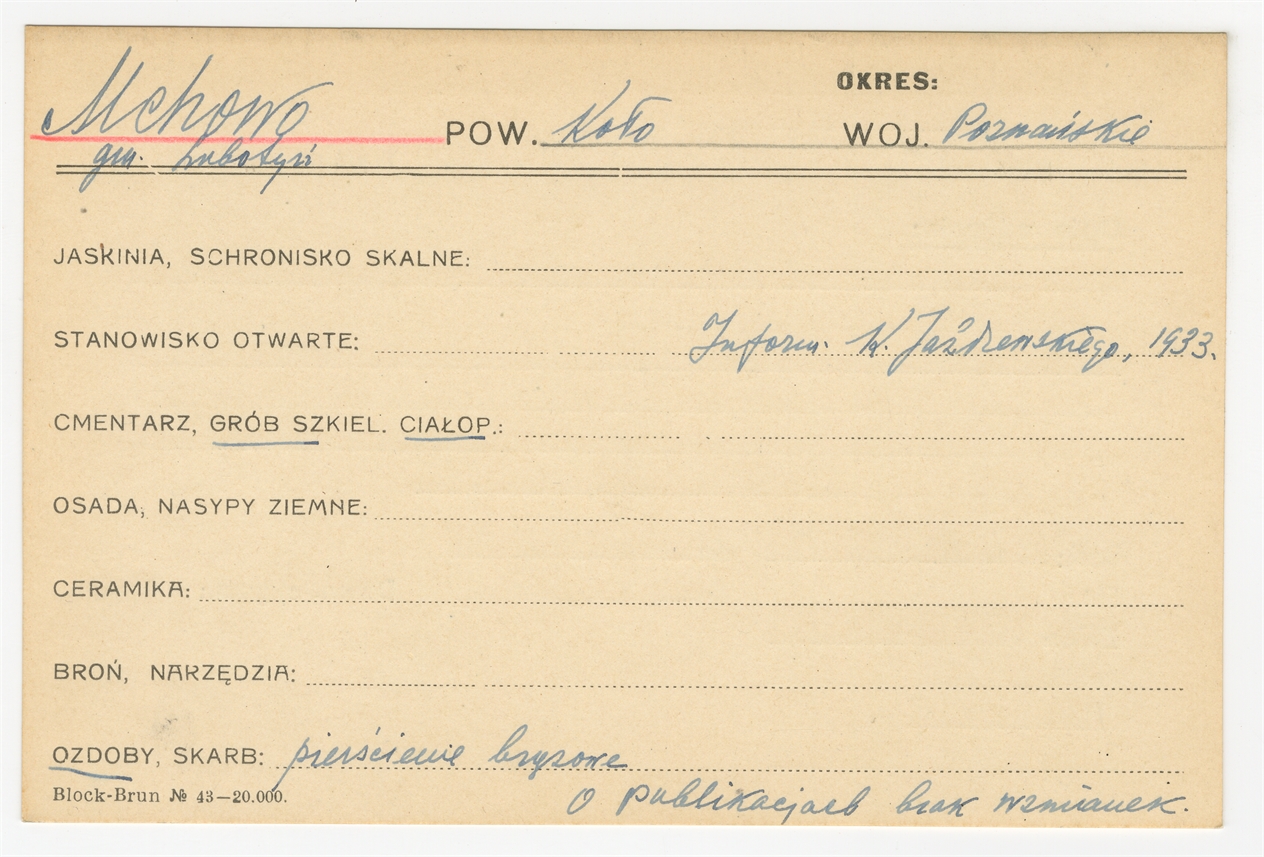 OKRES:
Mchowo POW. Koło WOJ. Poznańskie
gm. Lubotyń
JASKINIA, SCHRONISKO SKALNE:
STANOWISKO OTWARTE: Inform. K. Jażdżewskiego, 1933.
CMENTARZ, GRÓB SZKIEL. CIAŁOP.:
OSADA, NASYPY ZIEMNE:
CERAMIKA:
BROŃ, NARZĘDZIA:
OZDOBY, SKARB: pierścienie brązowe
Block-Brun № 43—20.000.
O publikacjach brak wzmianek.